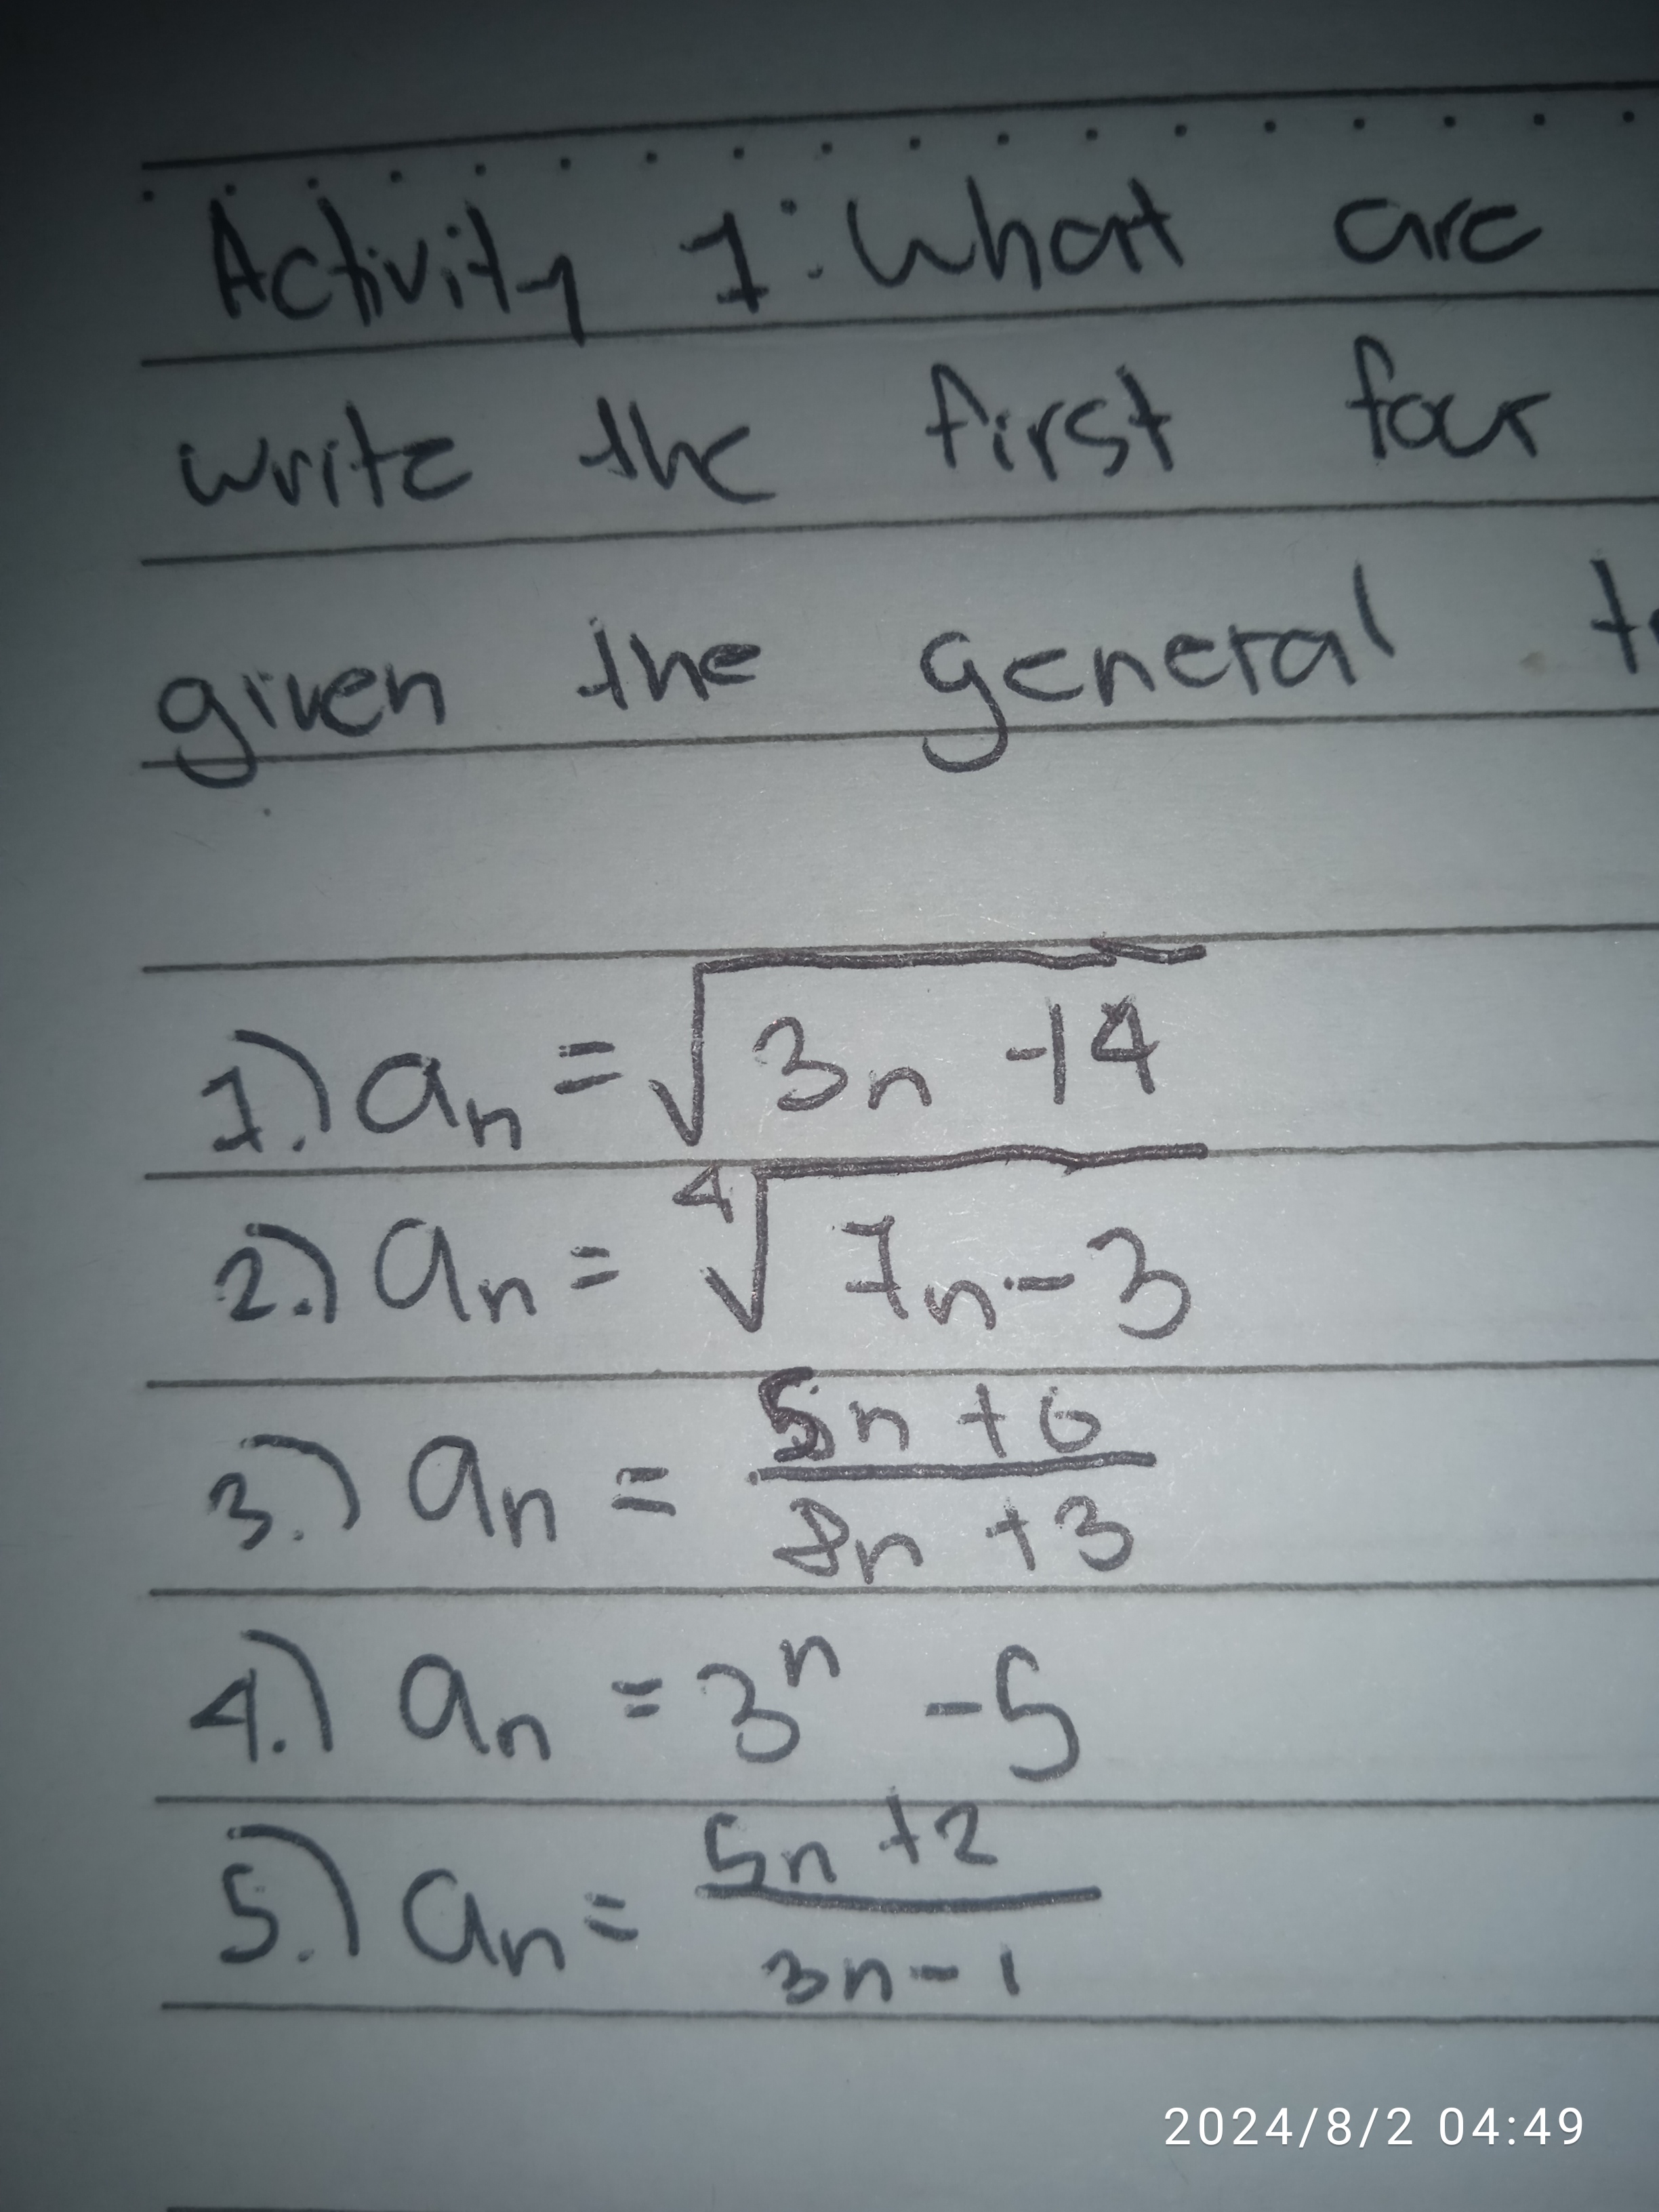 Activity 1: What are
write the first four
given the general
1.) aₙ = √3n -14
2.) aₙ = ⁴√7n - 3
3.) aₙ = 5n + 6 / 8n + 3
4.) aₙ = 3ⁿ - 5
5.) aₙ = 5n + 2 / 3n - 1
2024/8/2 04:49